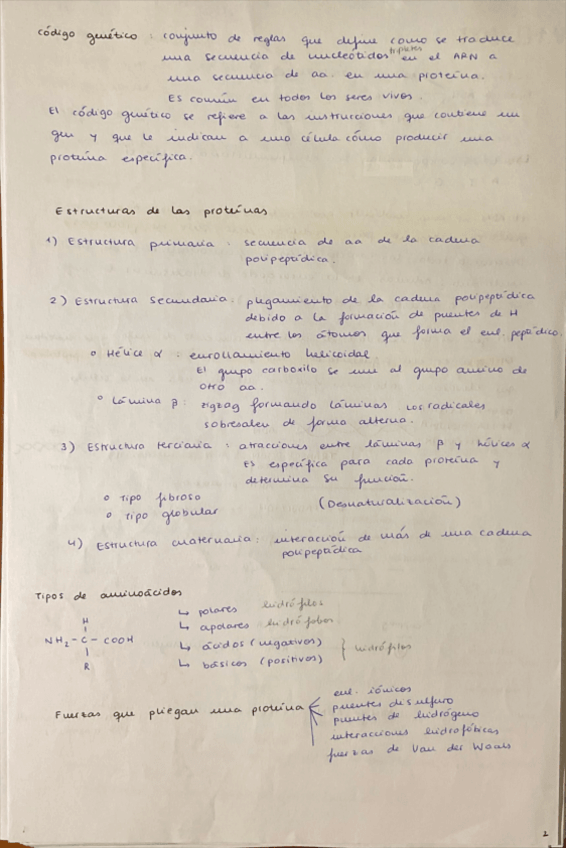 código genético : conjunto de reglas que define como se traduce
una secuencia de nucleótidos tripletes en el ARN a
una secuencia de aa. en una proteína.
Es común en todos los seres vivos.
El código genético se refiere a las instrucciones que contiene un
gen y que le indican a una célula cómo producir una
proteína específica.
Estructuras de las proteínas
1) Estructura primaria : secuencia de aa de la cadena
polipeptídica.
2) Estructura secundaria : plegamiento de la cadena polipeptídica
debido a la formación de puentes de H
entre los átomos que forma el enl. peptídico.
o Hélice α : enrollamiento helicoidal
El grupo carboxilo se une al grupo amino de
otro aa.
o Lámina β : zigzag formando láminas. Los radicales
sobresalen de forma alterna.
3) Estructura terciaria : atracciones entre láminas β y hélices α
Es específica para cada proteína y
determina su función.
o Tipo fibroso (Desnaturalización)
o Tipo globular
4) Estructura cuaternaria : interacción de más de una cadena
polipeptídica
Tipos de aminoácidos
↳ polares hidrófilos
↳ apolares hidrófobos
↳ ácidos (negativos)
↳ básicos (positivos) } hidrófilos
H
NH2 - C - COOH
R
Fuerzas que pliegan una proteína
enl. iónicos
puentes disulfuro
puentes de hidrógeno
interacciones hidrofóbicas
fuerzas de Van der Waals
2